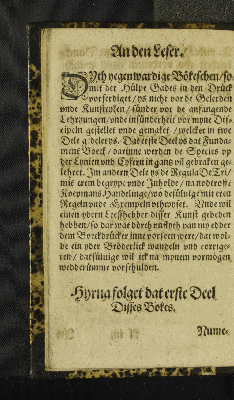 An den Leser.
Dyth yegenwardige Bökeschen / so
mit der Hülpe Gades in den Drück
vorferdiget / ys nicht vor de Gelerden
vnde Kunstryken / sünder vor de anfangende
Lehrjungen / vnde insünderheit vor myne Dis-
cipeln gestellet vnde gemaket / welcker in twe
Dele gedelet ys. Dat erste Deel ys dat Funda-
mente Boeck / darinne werden de Species vp
der Lynien vnd Cyfern in gantz vnd gebraken ge-
lehret. Im andern Dele ys de Regula De Tri /
mit erem begrype vnde Inholde / na nodtrofft
Koepmans Handelinge / wo desülvige mit eren
Regeln vnde Exempeln vthwyset. Vnde wil
einen ydern Leeffhebber disser Kunst gebeden
hebben / so dar wat dörch vnflyth van my edder
dem Boeckdrücker inne vorseen were / dat wol-
de ein yder Bröderlick wandeln vnd corrige-
ren / datsülvige wil ick na mynem vormögen
wedderümme vorschulden.
Hyrna folget dat erste Deel
Disses Bokes.
Nume-